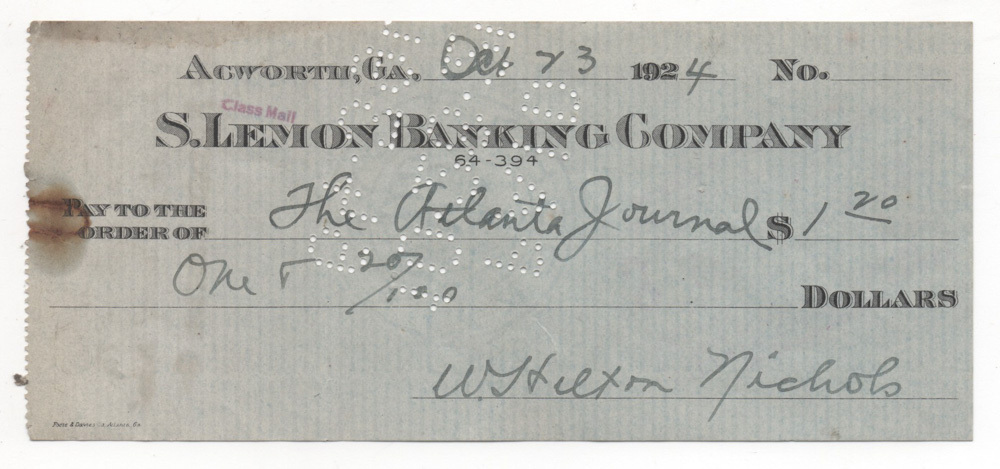 ACWORTH, GA. Oct 23 1924 No.
Class Mail
S. LEMON BANKING COMPANY
64-394
PAY TO THE ORDER OF The Atlanta Journal $ 1 20
One & 20/100 DOLLARS
W. Hilton Nichols
Atlanta, Ga